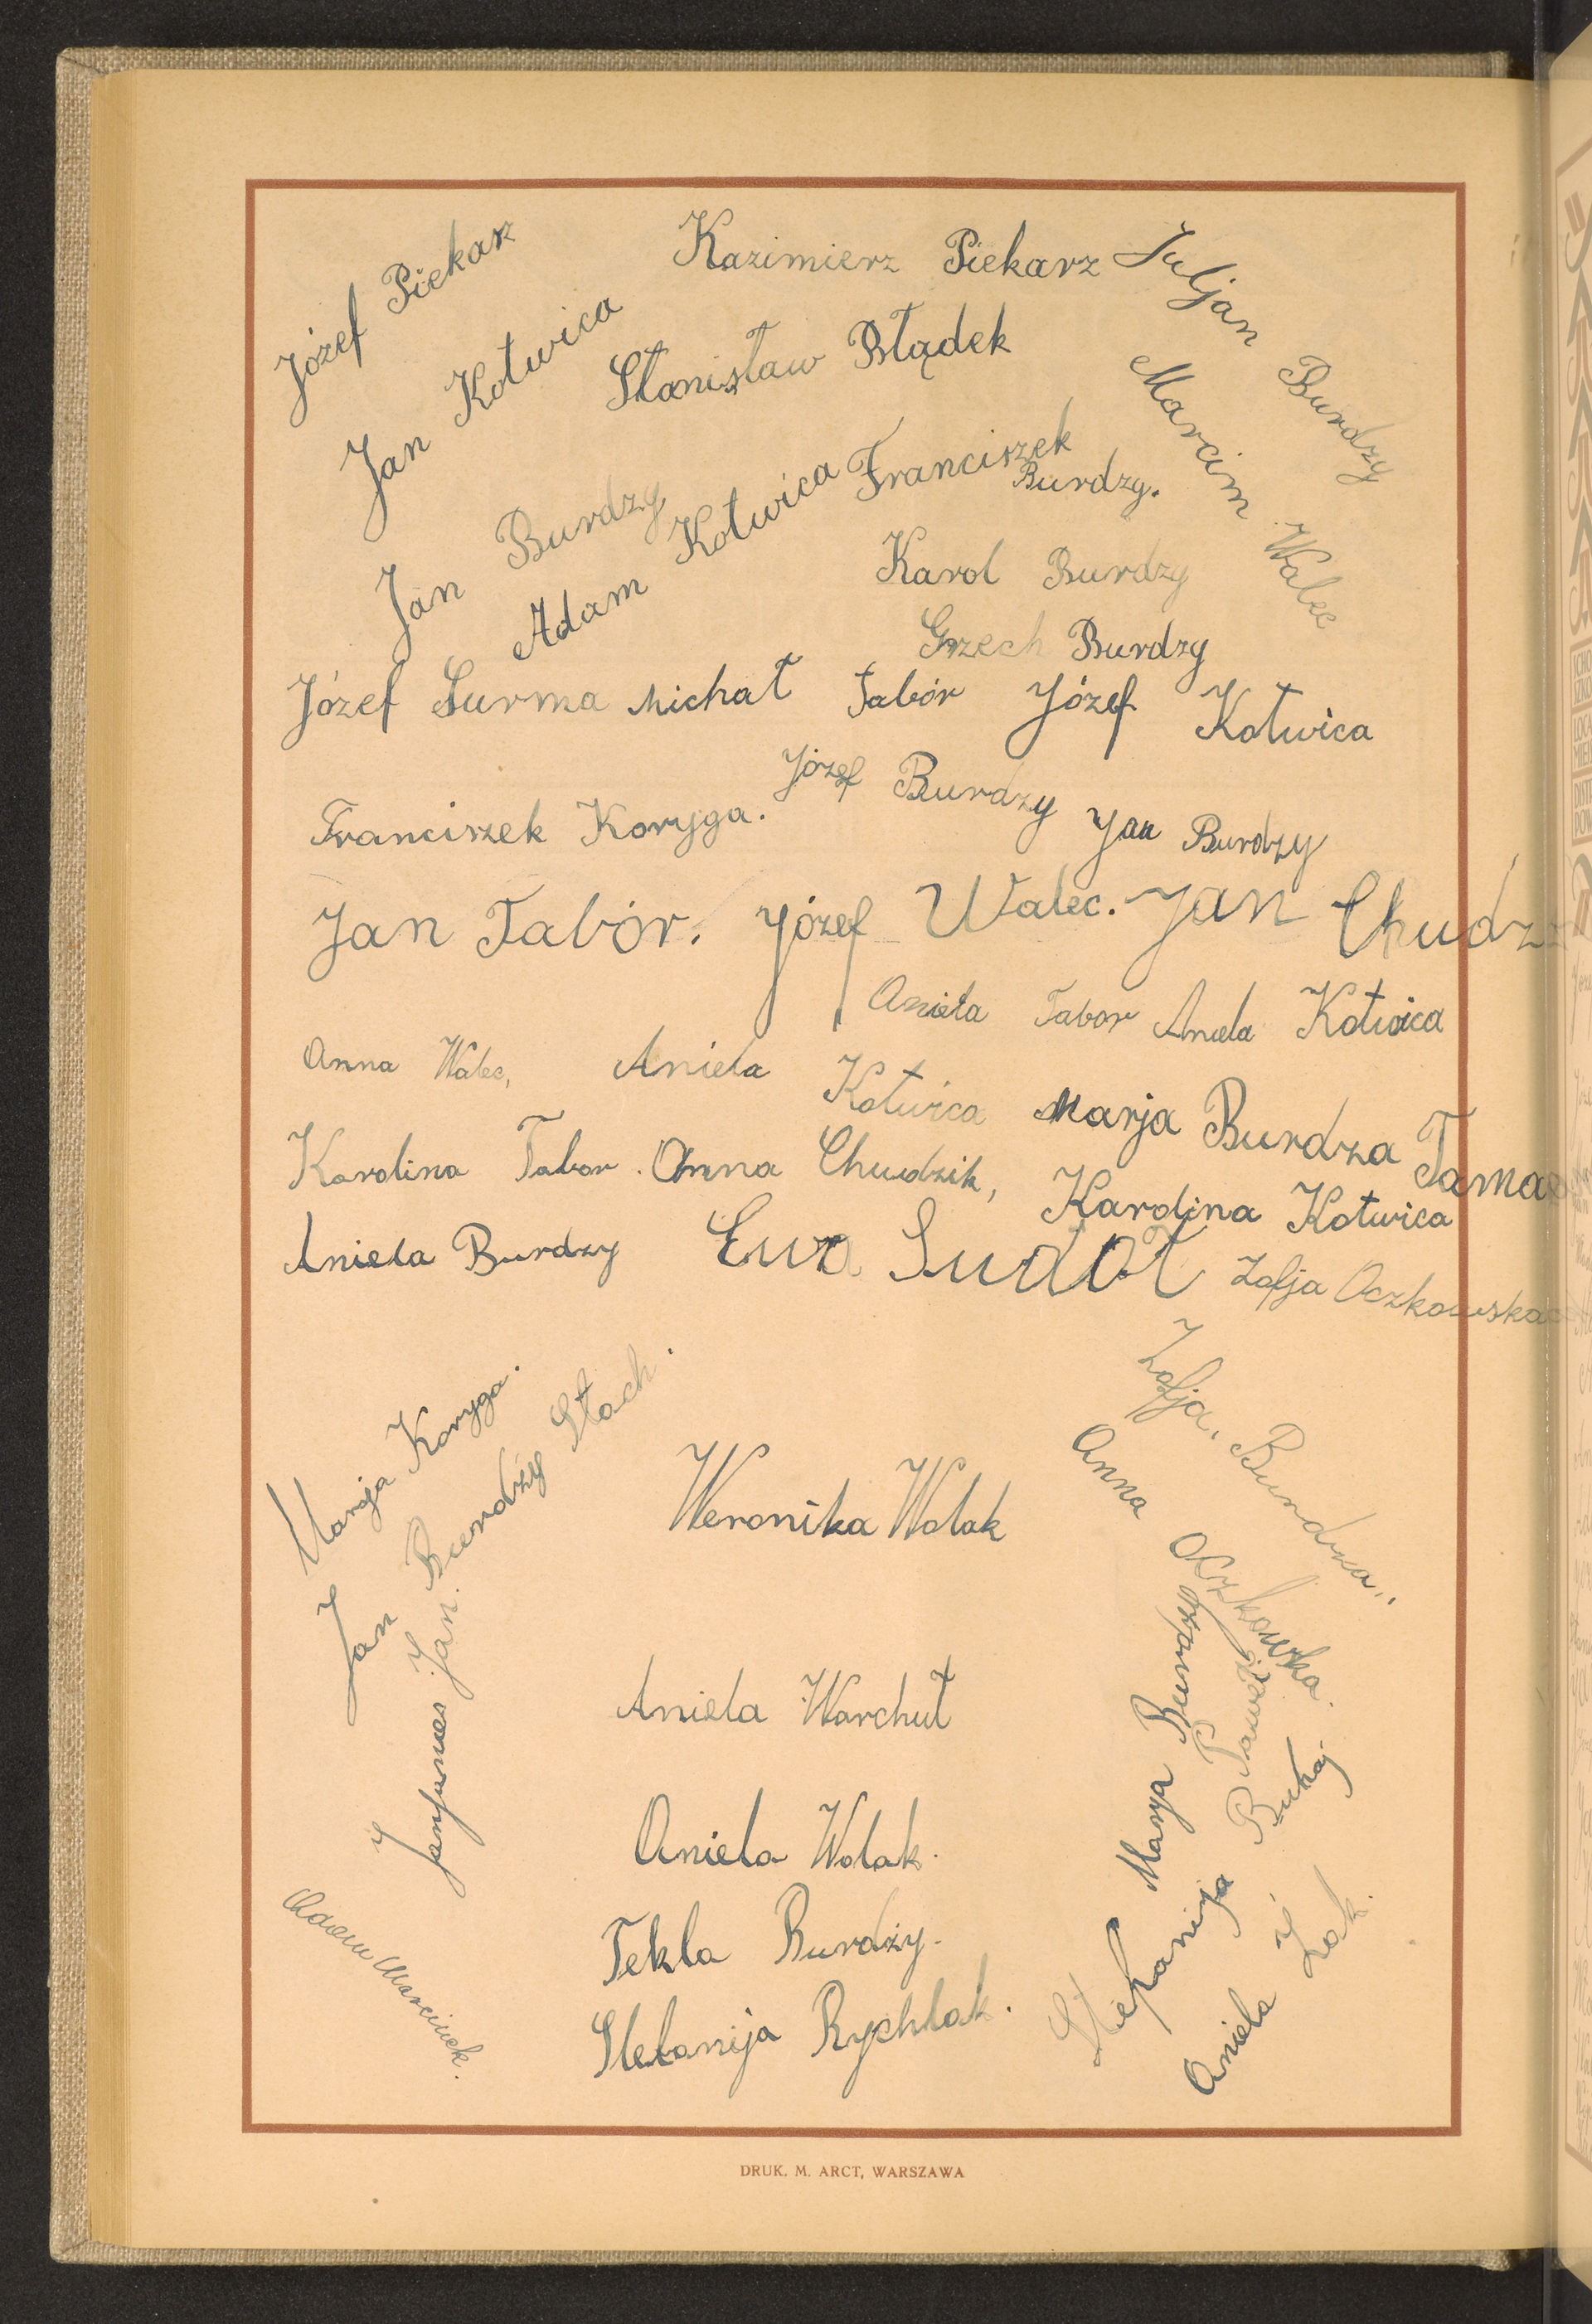 Józef Piekarz
Kazimierz Piekarz
Juljan Burdzy
Jan Kotwica
Stanisław Błądek
Marcin Walec
Jan Burdzy
Adam Kotwica
Franciszek Burdzy.
Karol Burdzy
Grzech Burdzy
Józef Surma Michał Tabór Józef Kotwica
Franciszek Koryga. Józef Burdzy Jan Burdzy
Jan Tabór. Józef Walec. Jan Chudz
Aniela Tabor Aniela Kotwica
Anna Walec, Aniela Kotwica Marja Burdza
Karolina Tabor. Anna Chudzik, Karolina Kotwica
Aniela Burdzy Ewa Sudoł Zofja Oczkowska
Marja Koryga.
Jan Burdzy
Jan Stach.
Weronika Wolak
Zofja, Burdza,,
Anna Oczkowska.
Aniela Warchuł
Marya Burdzy
Aniela Wolak.
Stefanija Bukaj
Adam Marciniek.
Tekla Burdzy.
Stefanija Rychlak.
Aniela Żak.
DRUK. M. ARCT, WARSZAWA